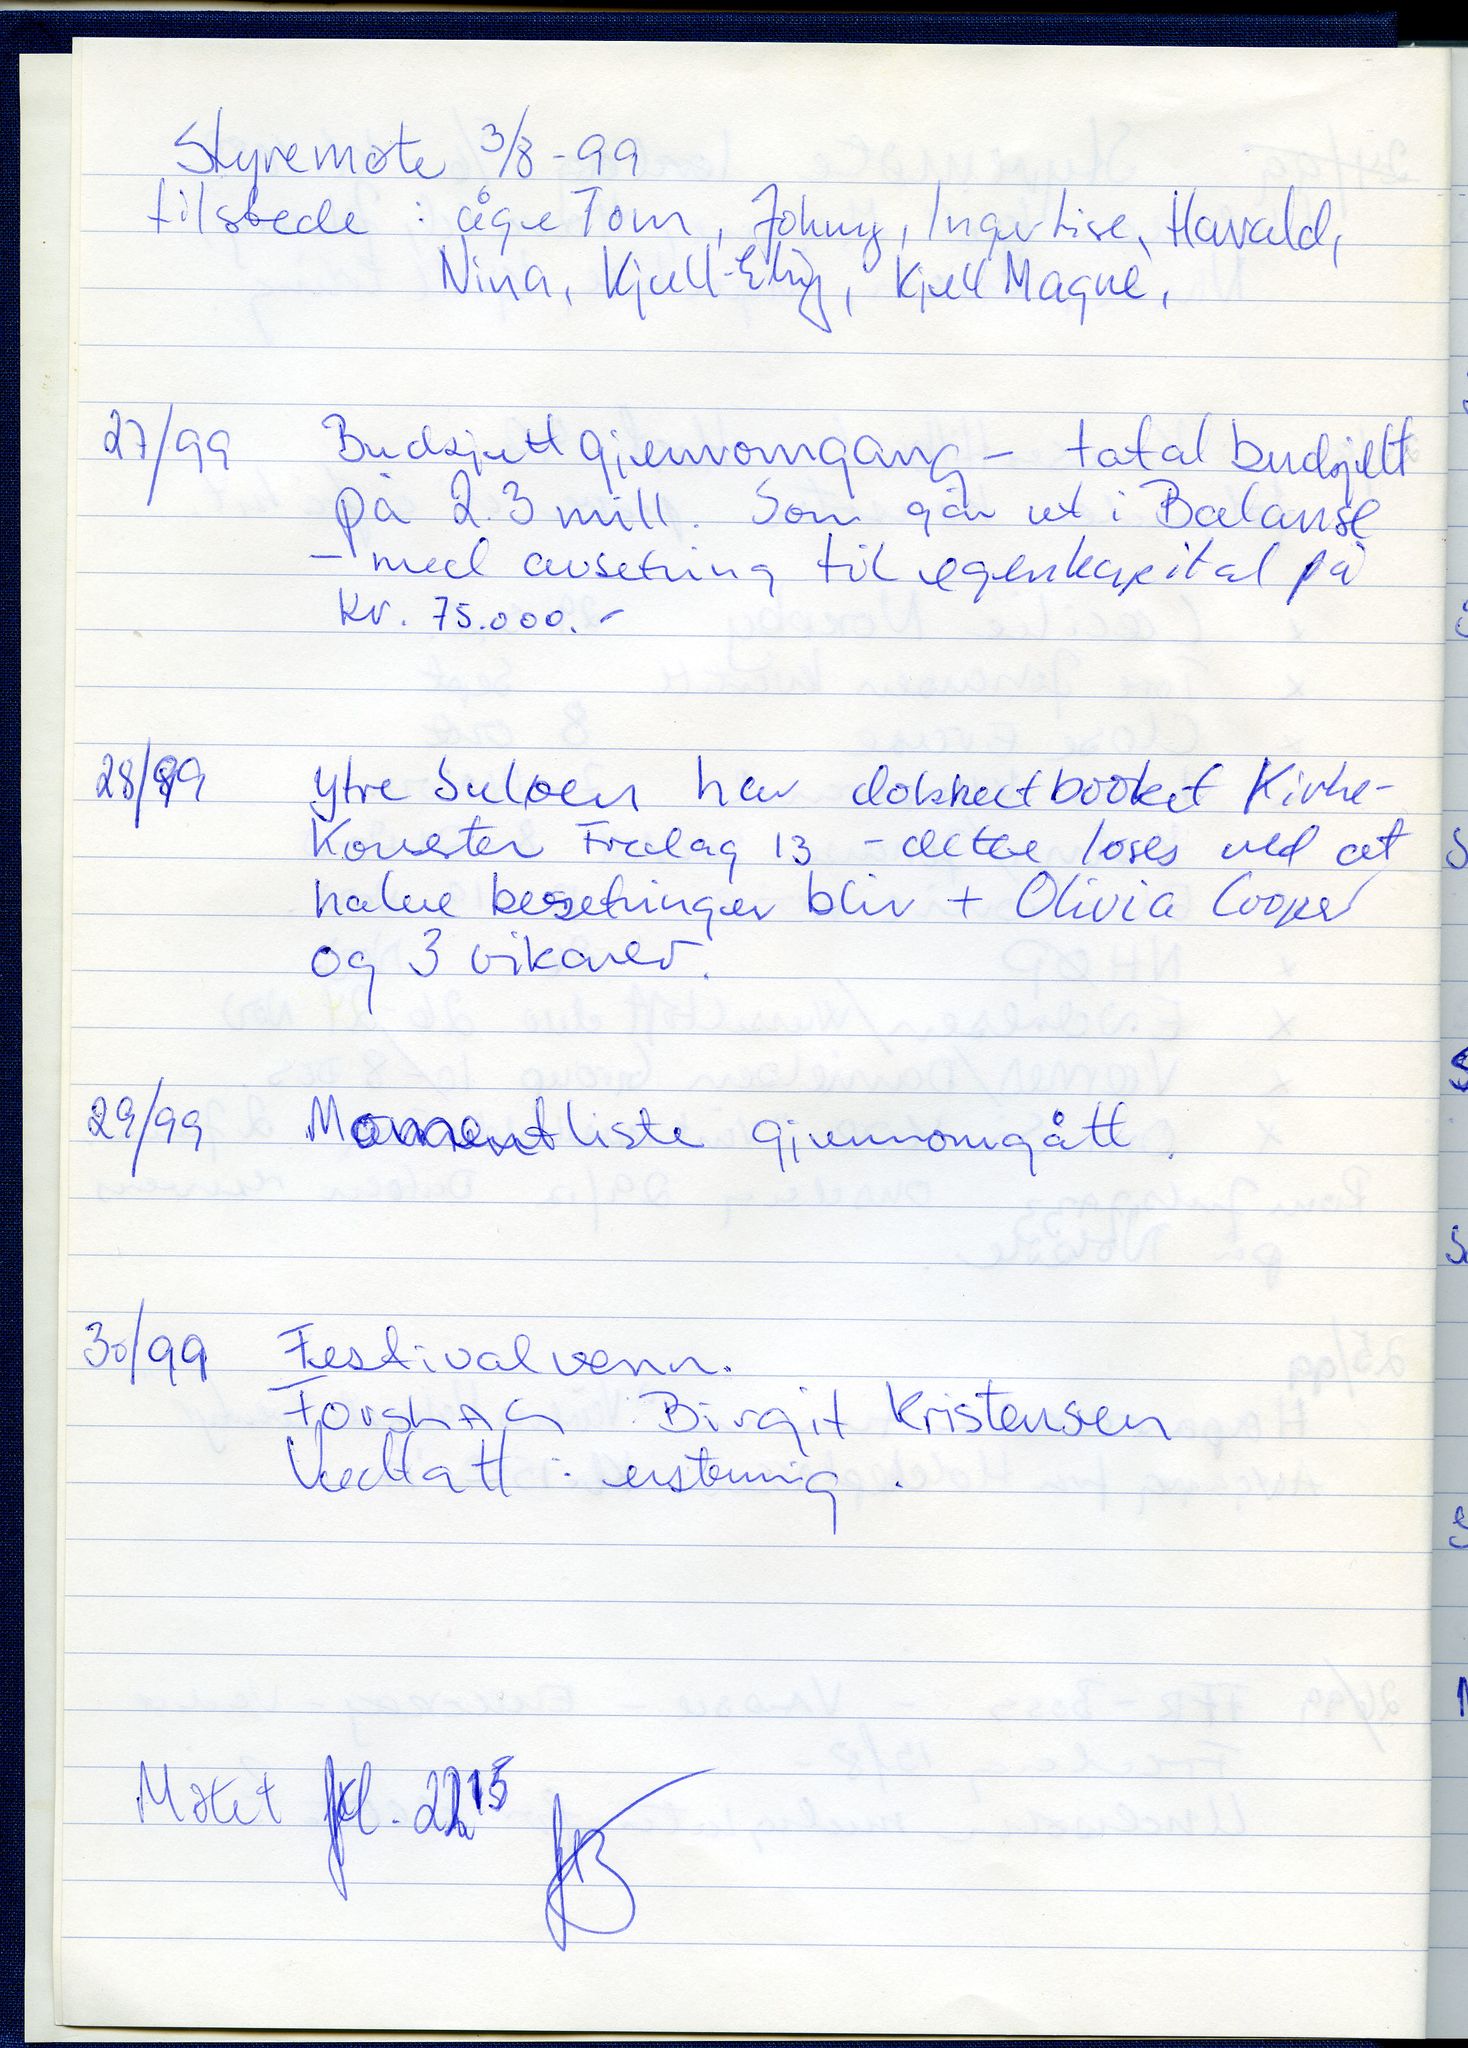 Styremøte 3/8-99
tilstede : åge Tom, Johny, Inger Lise, Harald,
Nina, Kjell-Erling, Kjell Magne,
27/99 Budsjett gjennomgang - total budsjett
på 2.3 mill. Som går ut i Balanse
- med avsetning til egenkapital på
kr. 75.000.-
28/99 Ytre Suløen har dobbeltbooket Kirke-
Konserten Fredag 13 - dette løses ved at
halve besetninger blir + Olivia Cooper
og 3 vikarer.
29/99 Momentliste gjennomgått.
30/99 Festivalvenn.
Forslag : Birgit Kristensen
Vedtatt : enstemmig.
Møtet kl. 22 15